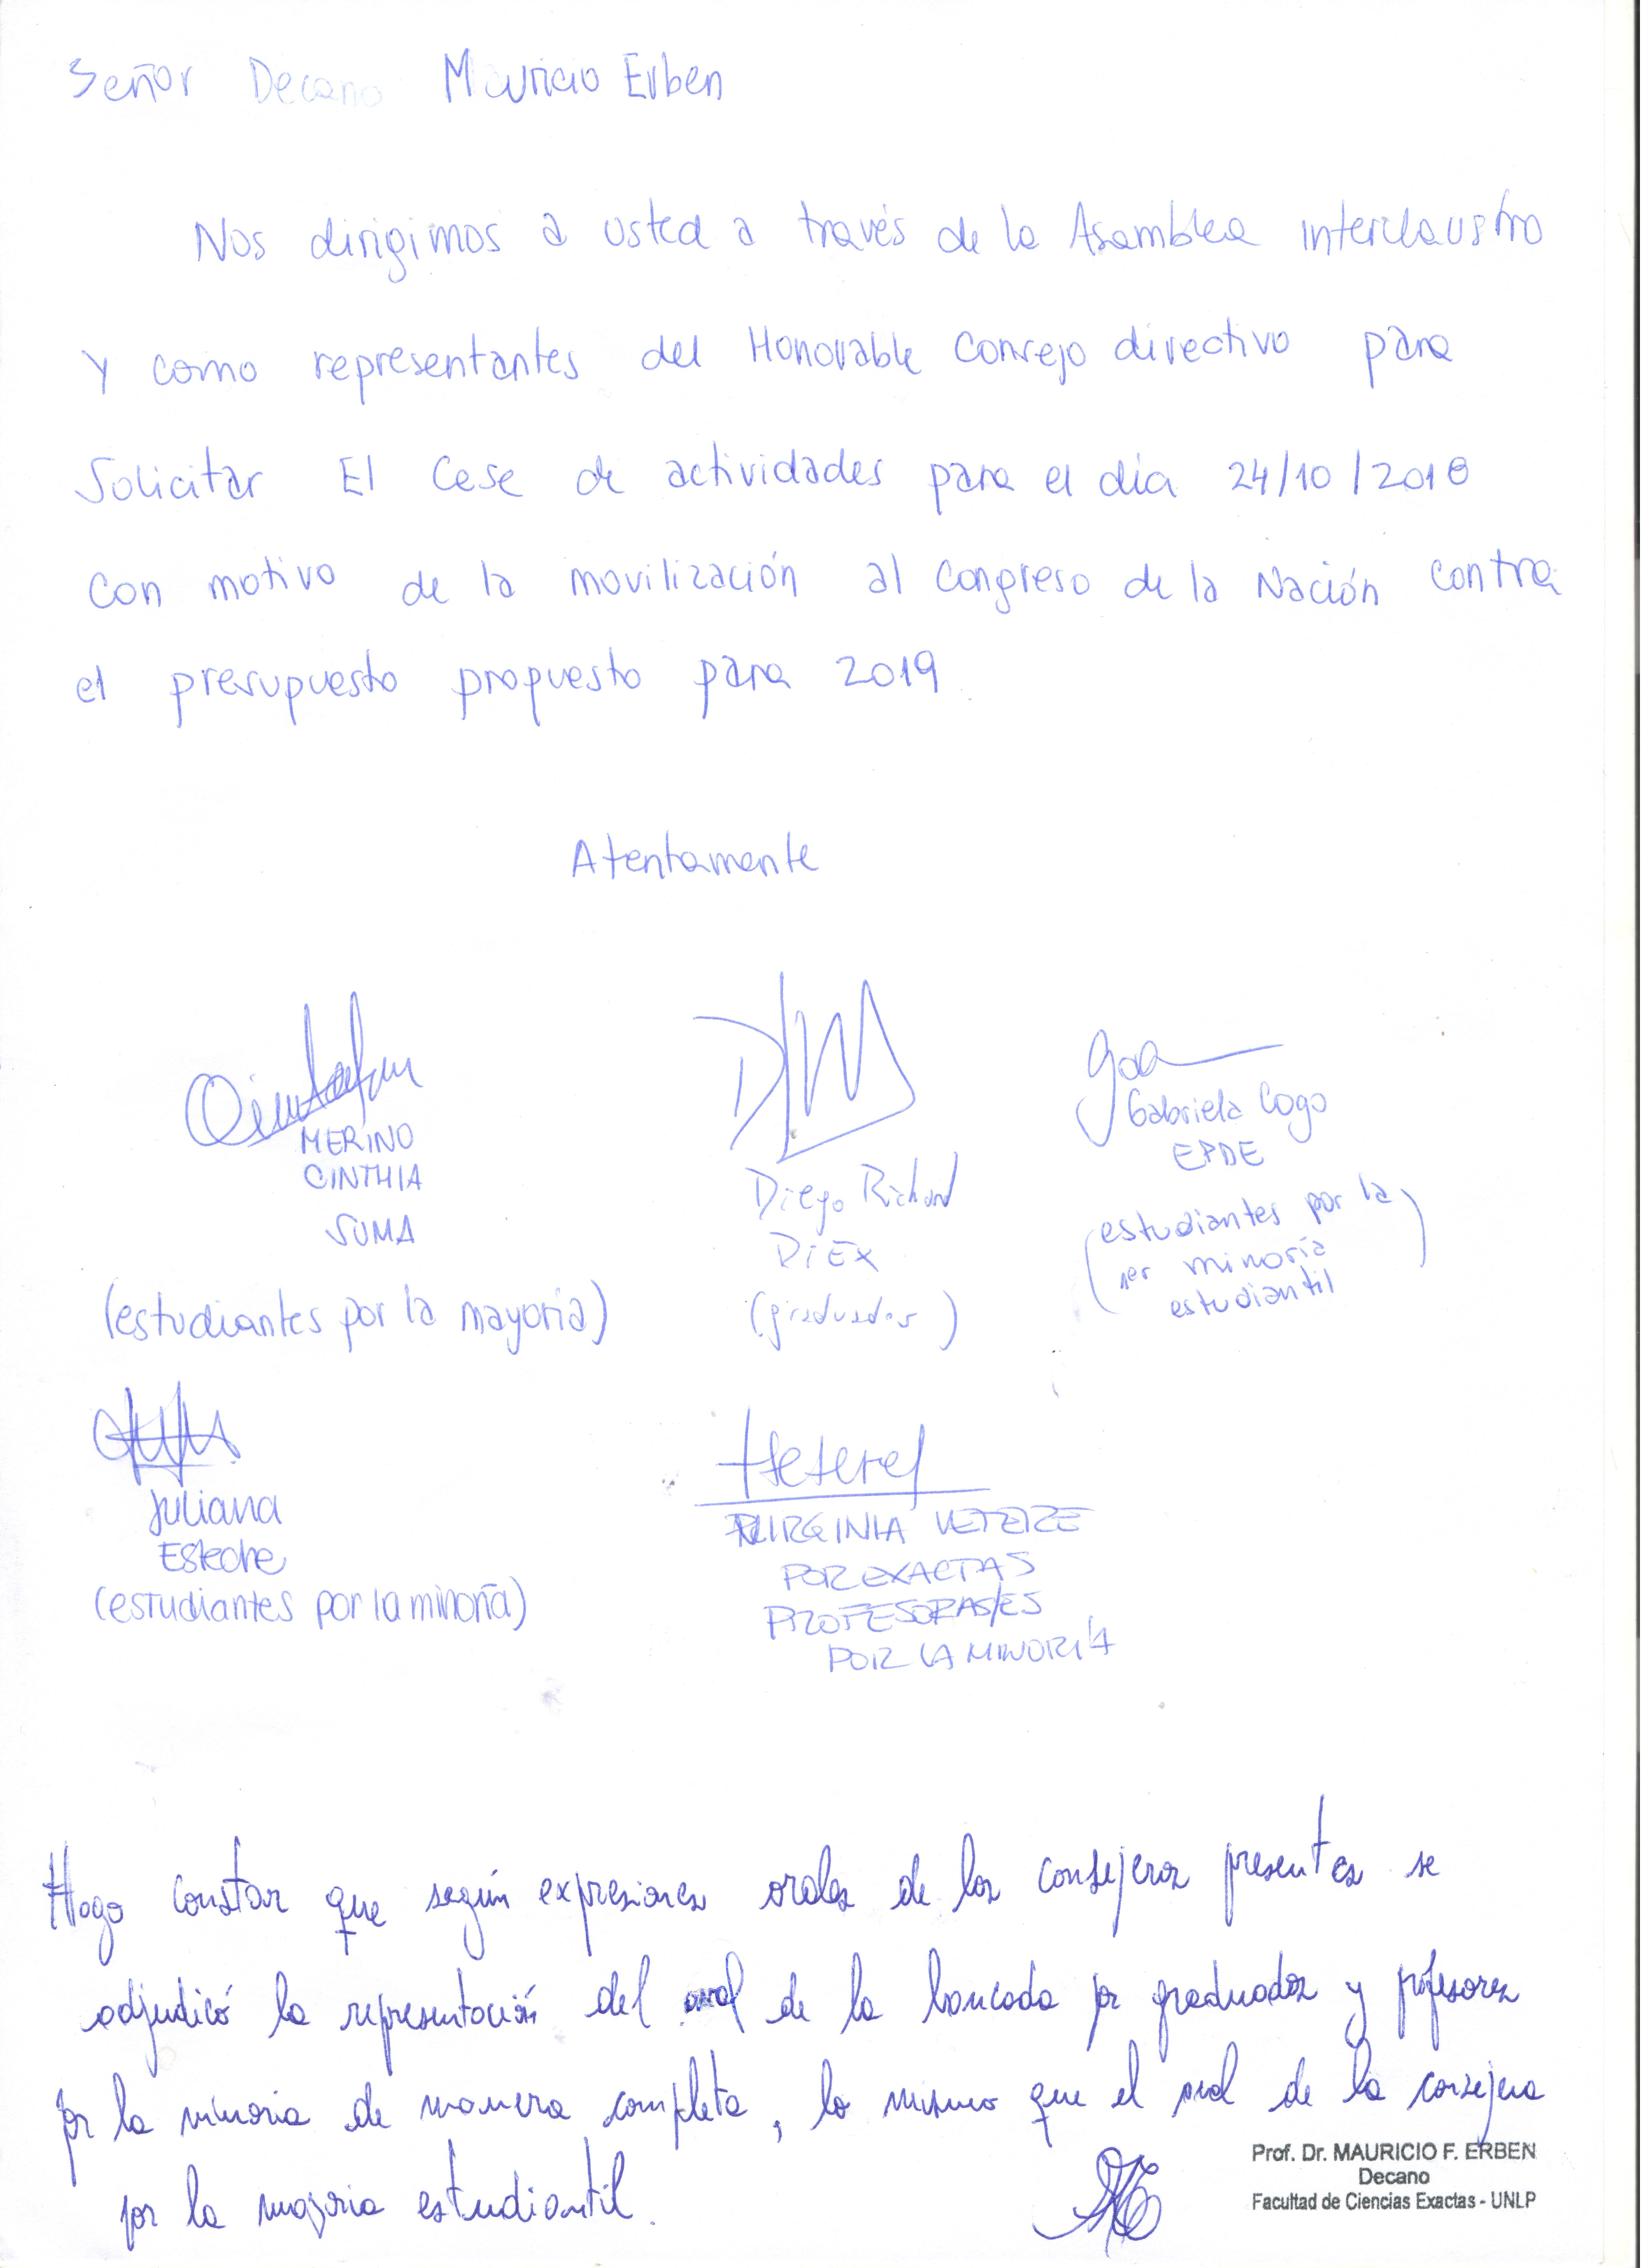 Señor Decano Mauricio Erben
Nos dirigimos a usted a través de la Asamblea interclaustro
y como representantes del Honorable Consejo directivo para
Solicitar El Cese de actividades para el día 24/10/2018
con motivo de la movilización al Congreso de la Nación contra
el presupuesto propuesto para 2019
Atentamente
MERINO
CINTHIA
SUMA
(estudiantes por la mayoría)
Diego Richard
DiEx
(graduados)
Gabriela Cogo
EPDE
(estudiantes por la
1er minoría
estudiantil)
Juliana
Esteche
(estudiantes por la minoría)
VIRGINIA VETERE
POR EXACTAS
PROFESORAS/ES
POR LA MINORÍA
Hago constar que según expresiones orales de los consejeros presentes se
adjudicó la representación del aval de la bancada por graduados y profesores
por la minoria de manera completa, lo mismo que el aval de la consejera
por la mayoria estudiantil.
Prof. Dr. MAURICIO F. ERBEN
Decano
Facultad de Ciencias Exactas - UNLP